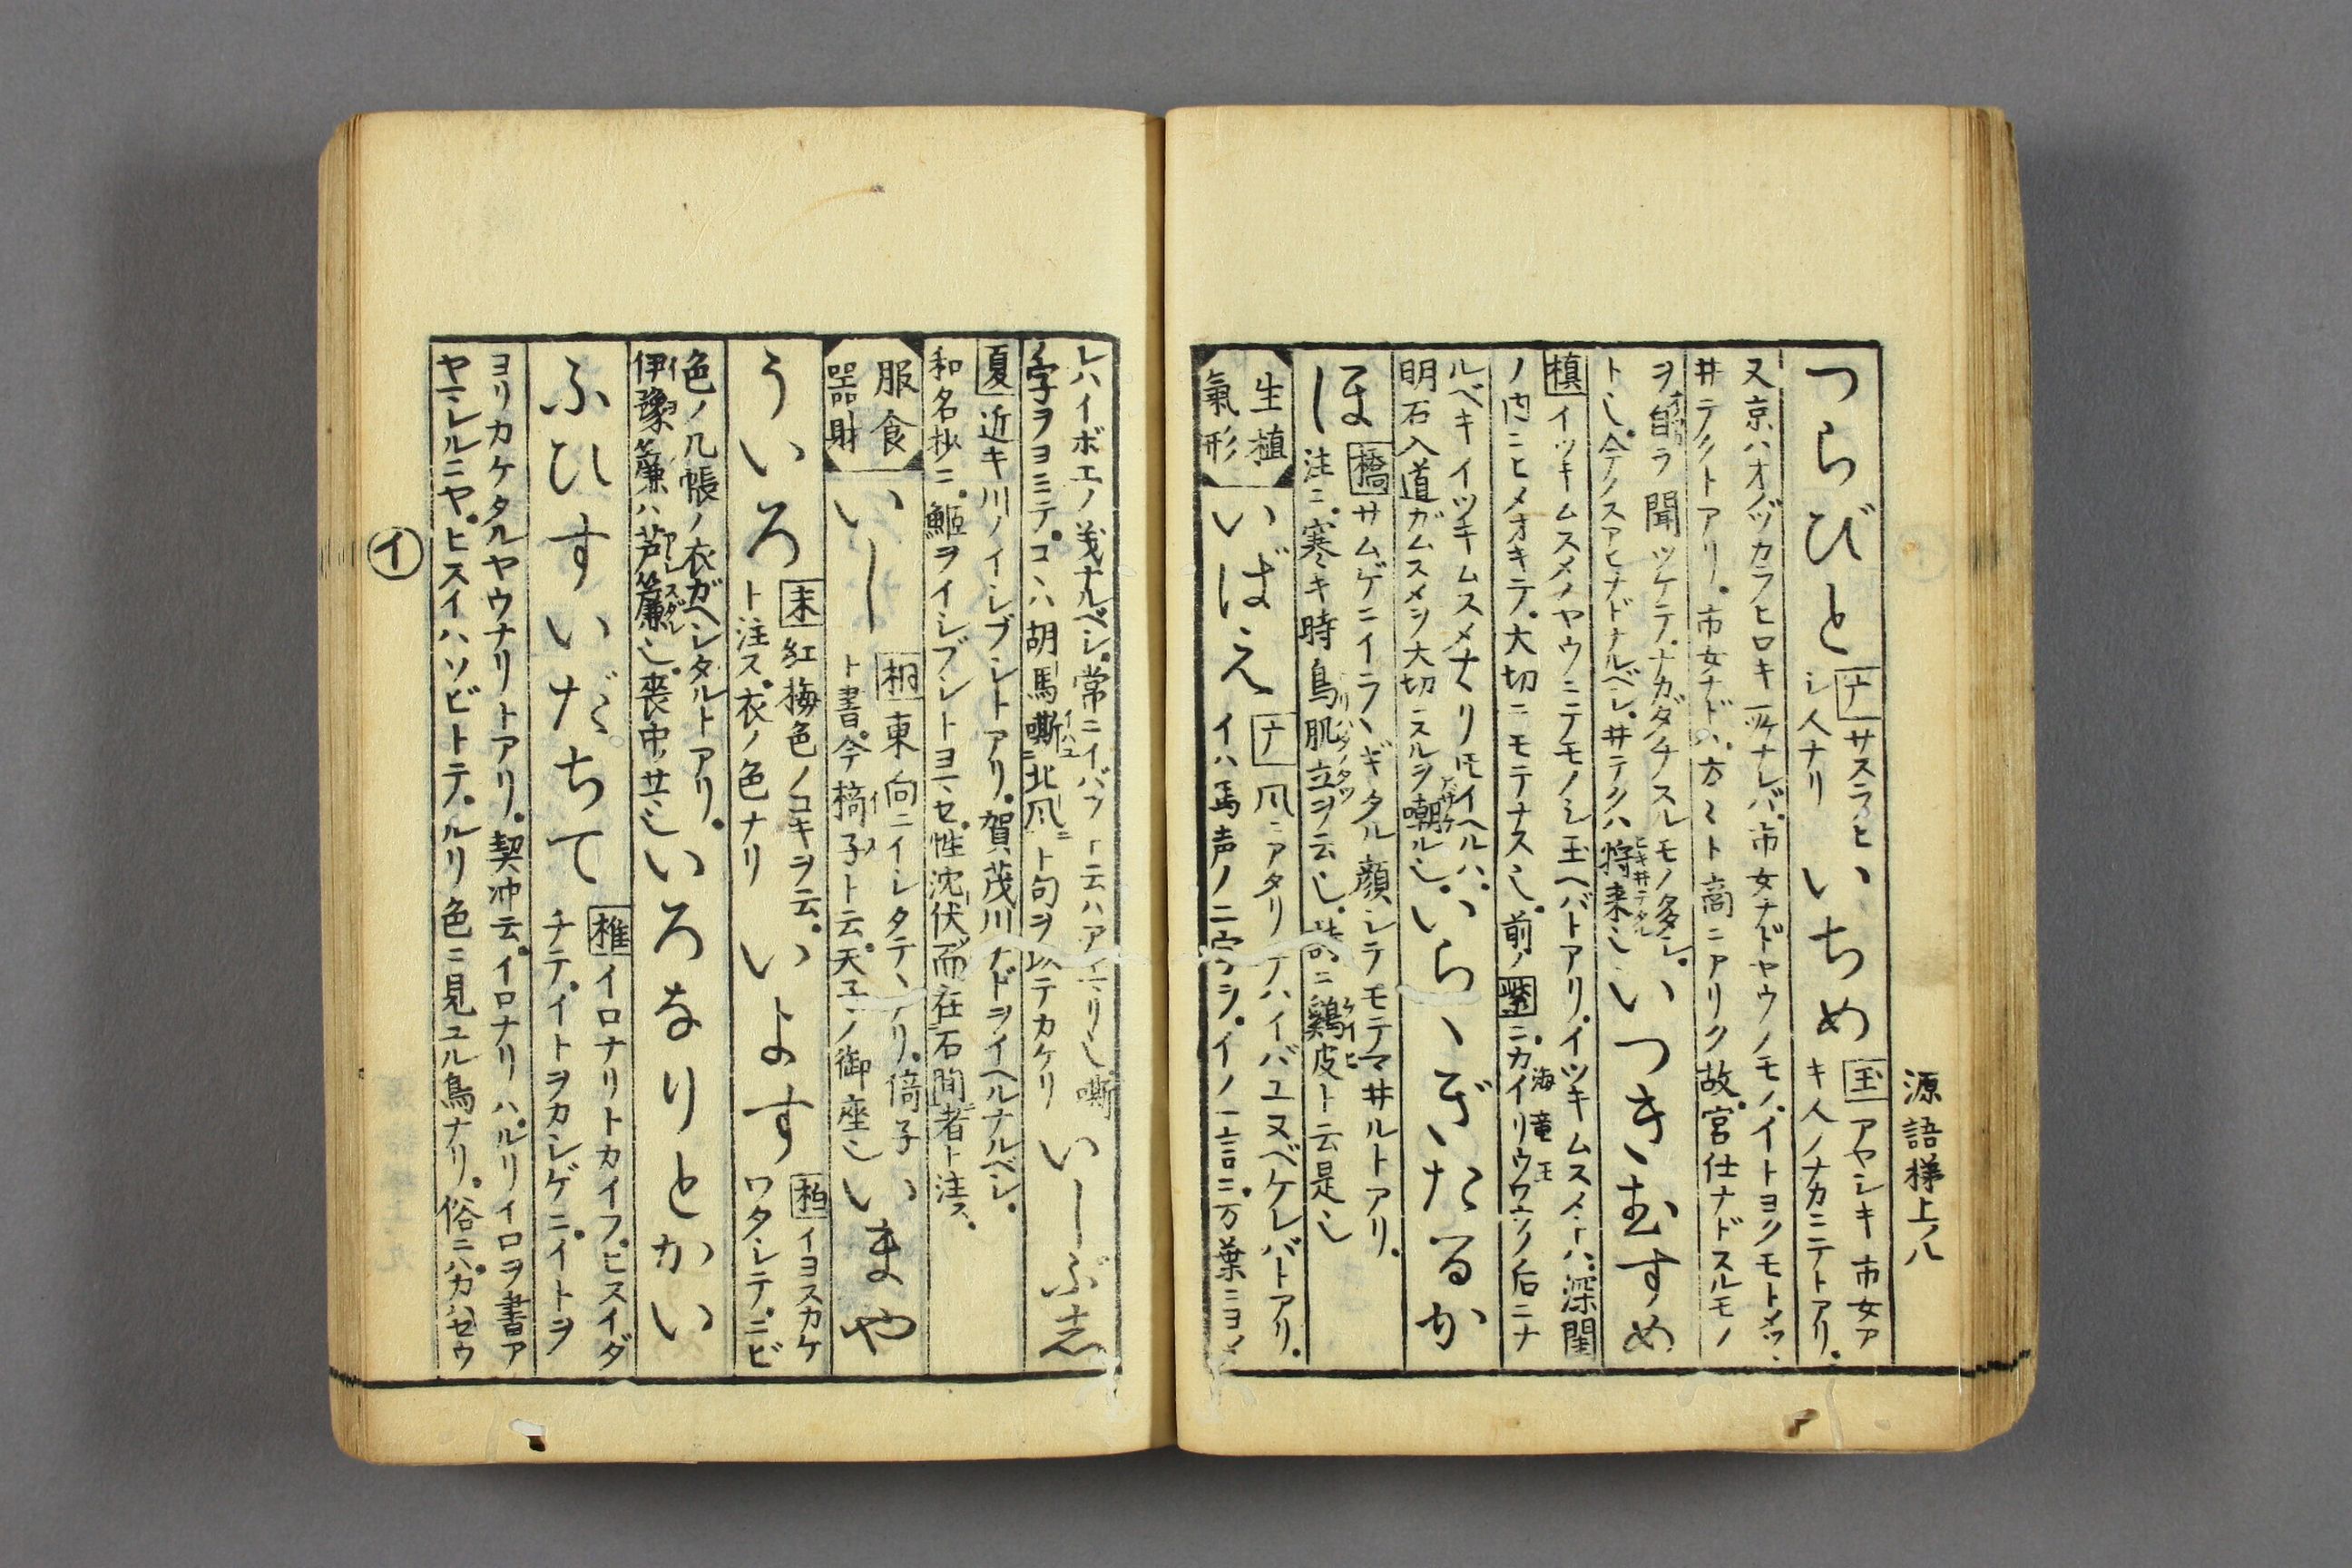 源語梯上ノ八
つらびと
ナ サスラヒ
シ人ナリ
いちめ
玉 アヤシキ市女ア
キ人ノナカニテトアリ。
又京ハオノヅカラヒロキ所ナレバ。市女ナドヤウノモノ。イトヨクモトメツヽ
井テクトアリ。市女ナドハ。方〻ト高ニアリク故。宮仕ナドスルモノ
ヲ自ラ聞ツケテ。ナカダチスルモノ多シ。
ト也。今ノスアヒナドナルベシ。井テクハ将来也
いつきむすめ
槙 イツキムスメノヤウニテモノシ玉ヘバトアリ。イツキムスメトハ。深閨
ノ内ニヒメオキテ。大切ニモテナス也。前ノ紫ニ。カイリウワウノ后ニナ
海竜王
ルベキイツキムスメナリ
イヘルハ。
明石入道ガムスメヲ大切ニスルヲ嘲ル也。
いらゝぎたるか
ほ
橋 サムゲニイラヽギタル顔シテモテマ井ルトアリ。
注ニ。寒キ時鳥肌立ヲ云也。
ニ鶏皮ト云是也
生植
氣形
いばえ
ナ 風ニアタリテハイバユヌベケレバトアリ。
イハ馬声ノ二字ヲ。イノ一言ニ。万葉ニヨメ
レハイボエノ義ナルベシ。常ニイバフト云ハアヤマリ也嘶
ノ字ヲヨミテ。コハ胡馬嘶北風ニト句ヲ以テカケリ
いしぶし
夏 近キ川ノイシブシトアリ。賀茂川ナドヲイヘルナルベシ。
和名抄ニ。䱌ヲイシブシトヨマセ。性沈伏而在石間者ト注ス。
服食
器財
いし
桐 東向ニイシタテヽアリ。倚子
ト書。今椅子ト云。天子ノ御座也
いまや
ういろ
末 紅梅色ノコキヲ云。
ト注ス。衣ノ色ナリ
いよす
柏 イヨスカケ
ワタシテ。ニビ
色ノ几帳ノ衣ガヘシタルトアリ。
伊豫簾ハ芦簾也。喪中ノサマ也
いろなりとかい
ふひすいだちて
椎 イロナリトカイフ。ヒスイダ
チテ。イトヲカシゲニ。イトヲ
ヨリカケタルヤウナリトアリ。契冲云。イロナリハ。ルリイロヲ書ア
ヤマレルニヤ。ヒスイハソビトテ。ルリ色ニ見ユル鳥ナリ。俗ニハ。カハセウ
イ